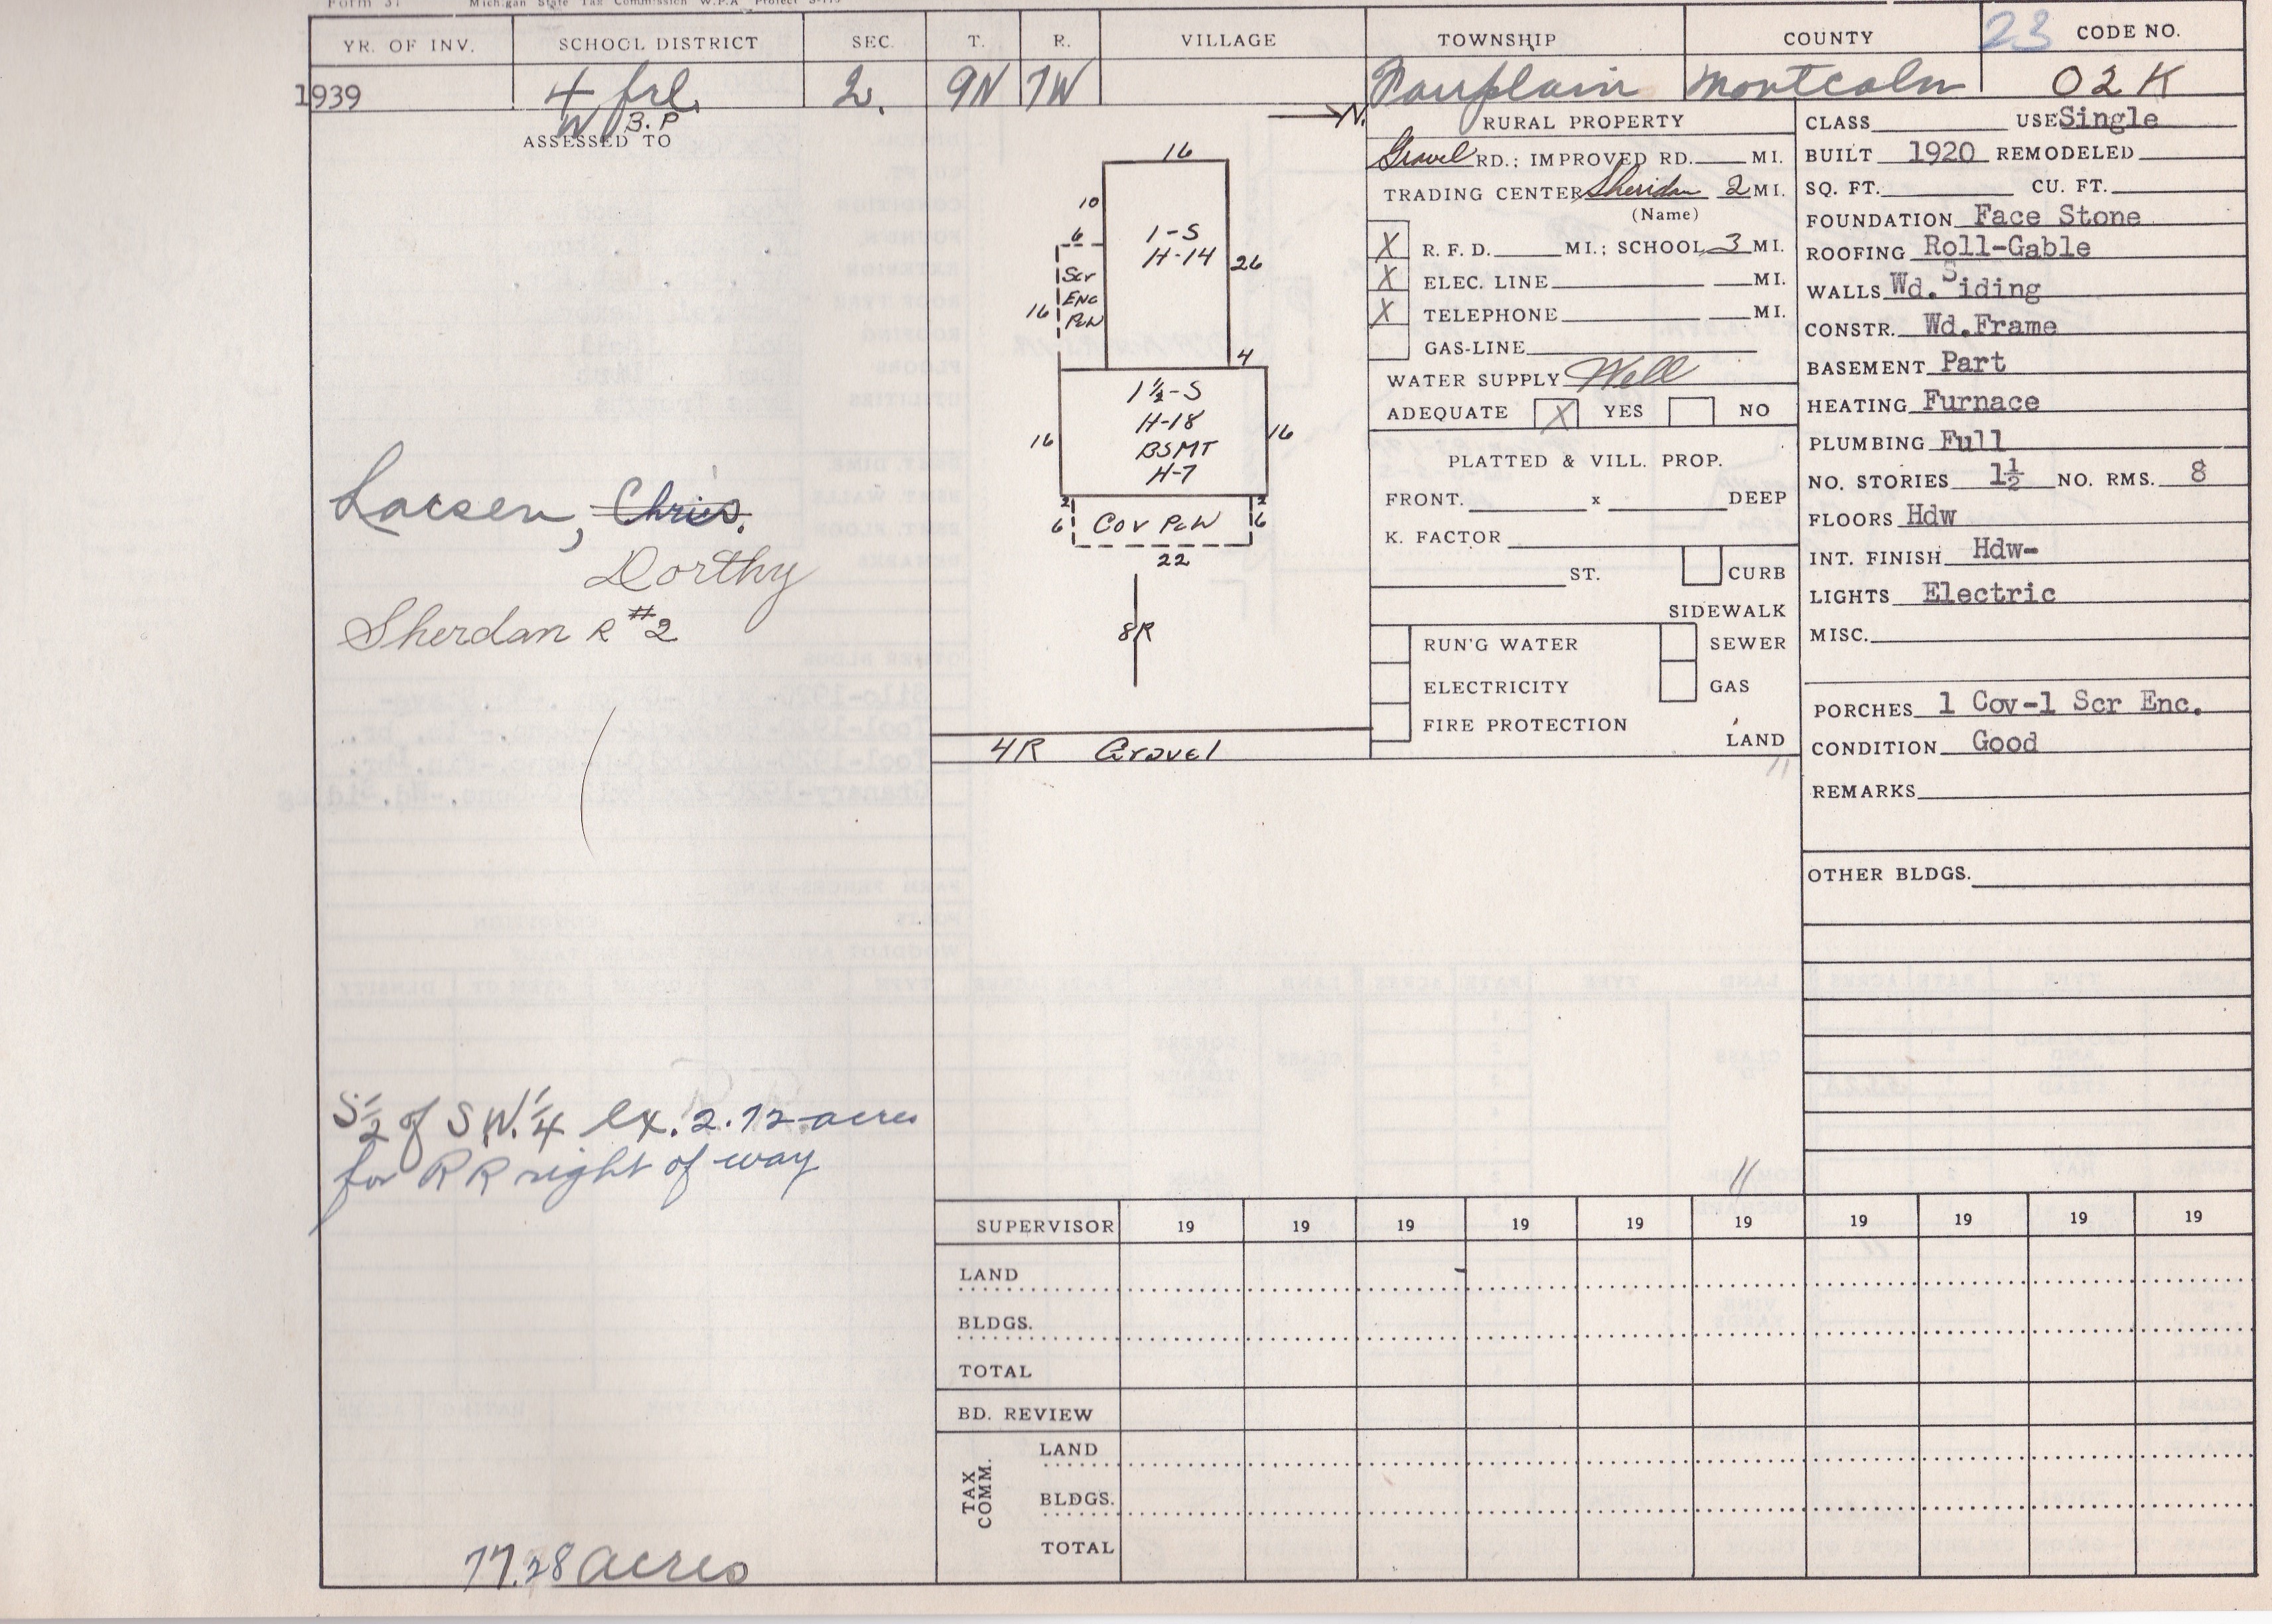 Form 37 Michigan State Tax Commission W.P.A Project
YR. OF INV. SCHOOL DISTRICT SEC. T. R. VILLAGE TOWNSHIP COUNTY 23 CODE NO.
1939 4 frl. 2. 9N 7W Fairplain Montcalm 02K
W B.P
ASSESSED TO
Larsen, Chris.
Dorthy
Sherdan R #2
S 1/2 of S W. 1/4 ex. 2.72 acres
for R R right of way
77.28 acres
N.
16
10
6
1-S
H-14
26
Scr
ENC
PcH
16
4
1½-S
H-18
BSMT
H-7
16
16
2
2
6
COV PcH
6
22
8R
4R Gravel
RURAL PROPERTY
Gravel RD.; IMPROVED RD. MI.
TRADING CENTER Sheridan 2 MI.
(Name)
X R. F. D. MI.; SCHOOL 3 MI.
X ELEC. LINE MI.
X TELEPHONE MI.
GAS-LINE
WATER SUPPLY Well
ADEQUATE X YES NO
PLATTED & VILL. PROP.
FRONT. x DEEP
K. FACTOR
ST. CURB
SIDEWALK
RUN'G WATER SEWER
ELECTRICITY GAS
FIRE PROTECTION
LAND
CLASS USE Single
BUILT 1920 REMODELED
SQ. FT. CU. FT.
FOUNDATION Face Stone
ROOFING Roll-Gable
WALLS Wd. Siding
CONSTR. Wd.Frame
BASEMENT Part
HEATING Furnace
PLUMBING Full
NO. STORIES 1½ NO. RMS. 8
FLOORS Hdw
INT. FINISH Hdw-
LIGHTS Electric
MISC.
PORCHES 1 Cov-1 Scr Enc.
CONDITION Good
REMARKS
OTHER BLDGS.
SUPERVISOR 19 19 19 19 19 19 19 19 19 19
LAND
BLDGS.
TOTAL
BD. REVIEW
TAX COMM.
LAND
BLDGS.
TOTAL